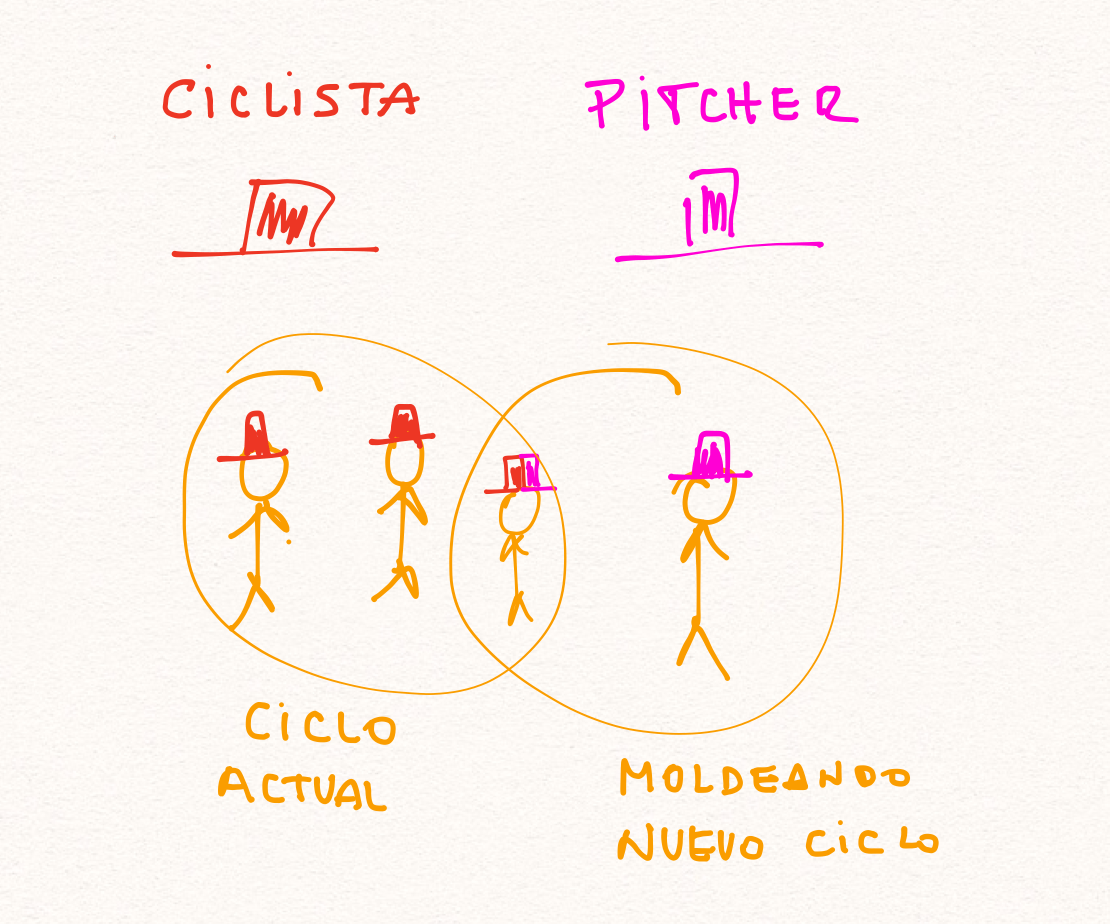 CiCLiSTA
PiTCHER
CiCLO
ACTUAL
MOLDEANDO
NUEVO CiCLO